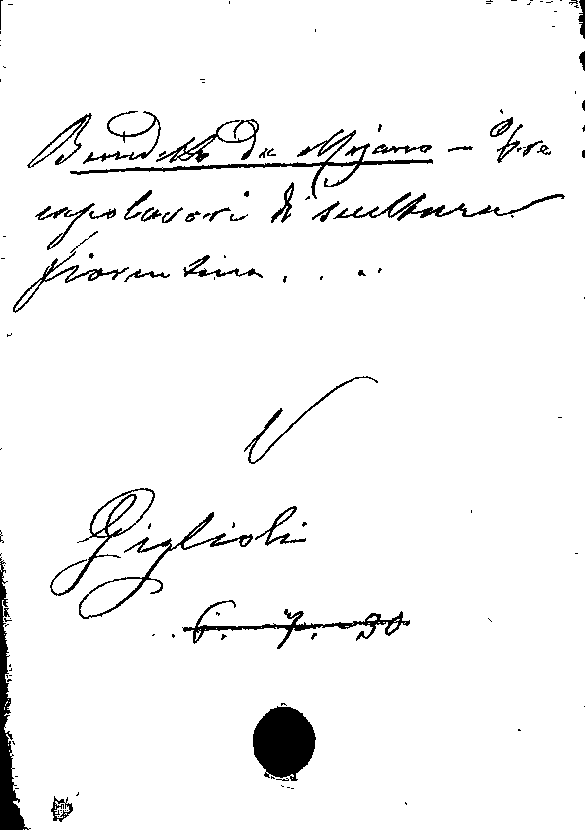 Benedetto da Majano – Tre
capolavori di scultura
fiorentina . . . .
V
Giglioli
6. 7. 30